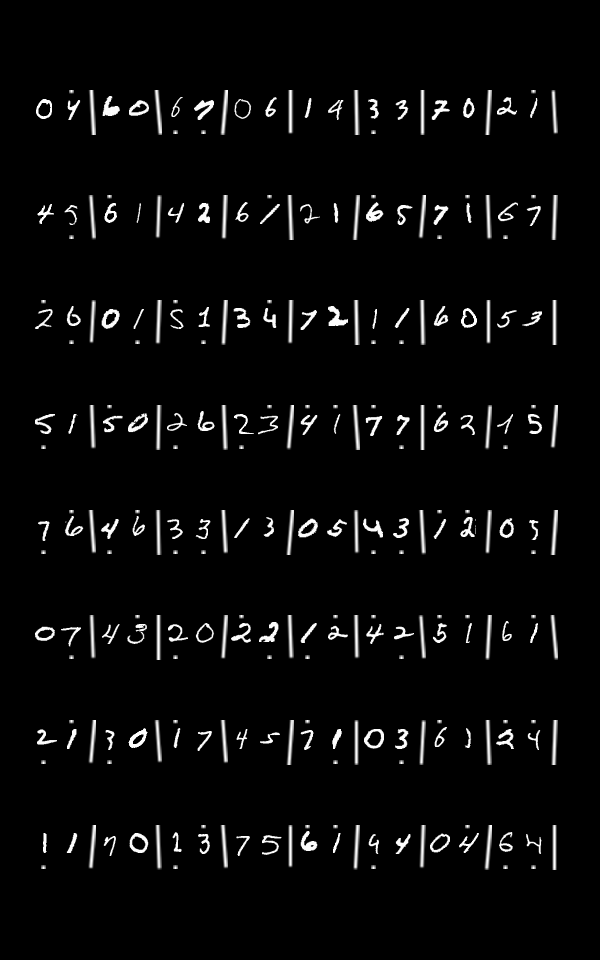 0 4 | 6 0 | 6 7 | 0 6 | 1 4 | 3 3 | 7 0 | 2 1 |
4 5 | 6 1 | 4 2 | 6 1 | 2 1 | 6 5 | 7 1 | 6 7 |
2 6 | 0 1 | 5 1 | 3 4 | 7 2 | 1 1 | 6 0 | 5 3 |
5 1 | 5 0 | 2 6 | 2 3 | 4 1 | 7 7 | 6 2 | 1 5 |
7 6 | 4 6 | 3 3 | 1 3 | 0 5 | 4 3 | 1 2 | 0 5 |
0 7 | 4 3 | 2 0 | 2 2 | 1 2 | 4 2 | 5 1 | 6 1 |
2 1 | 3 0 | 1 7 | 4 5 | 7 1 | 0 3 | 6 1 | 2 4 |
1 1 | 7 0 | 1 3 | 7 5 | 6 1 | 4 4 | 0 4 | 6 4 |